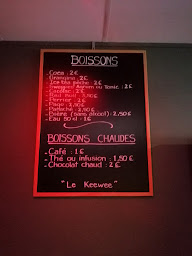 BOISSONS
- Coca : 2€
- Orangina : 2€
- Ice tea pêche : 2€
- Schweppes Agrum ou Tonic : 2€
- Perrier : 2€
- Pago : 2€
- Panaché : 2,50€
- Bière (sans alcool) : 2,50€
- Eau 50cl : 1€
BOISSONS CHAUDES
- Café : 1€
- Thé ou infusion : 1,50€
- Chocolat chaud : 2€
"Le Keewee"